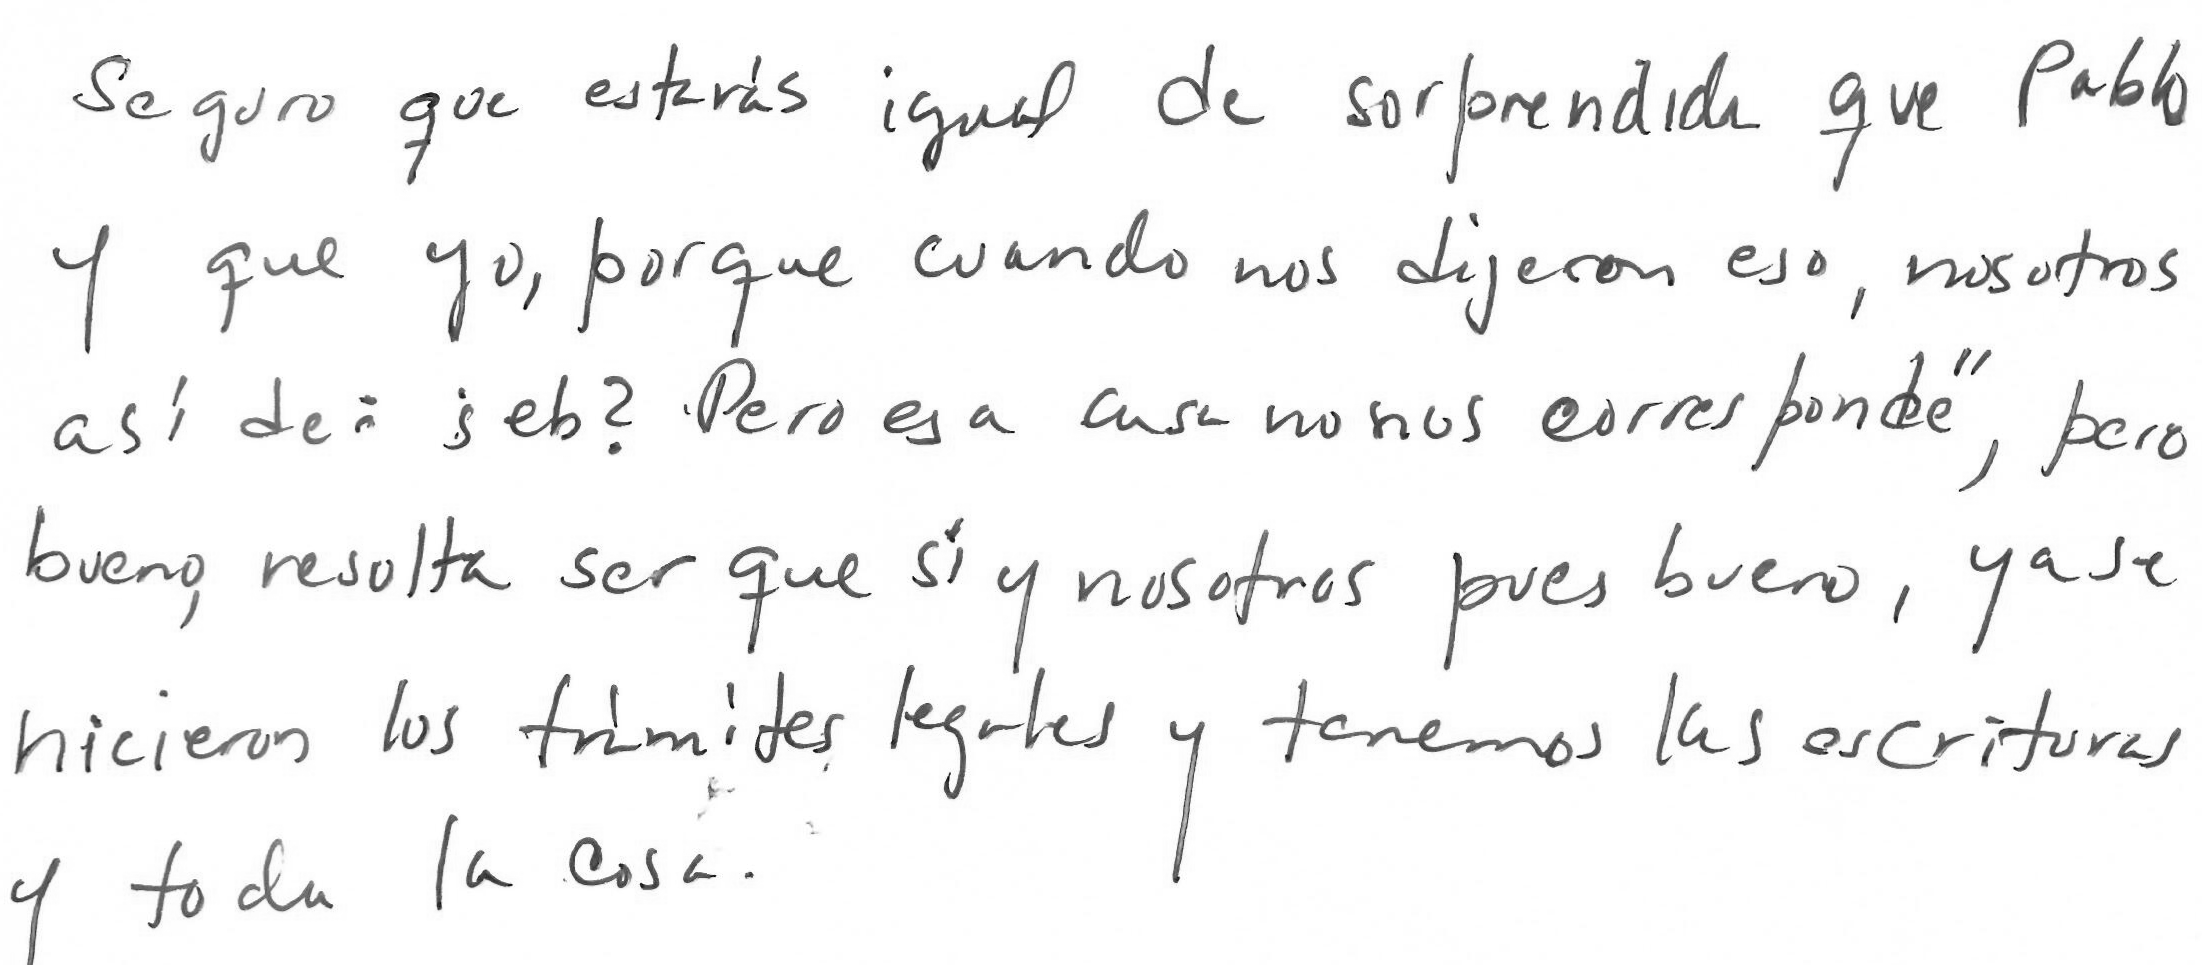 Seguro que estarás igual de sorprendida que Pablo
y que yo, porque cuando nos dijeron eso, nosotros
así de: ¿eh? Pero esa casa no nos corresponde", pero
bueno, resulta ser que sí y nosotros pues bueno, ya se
hicieron los trámites legales y tenemos las escrituras
y toda la cosa.